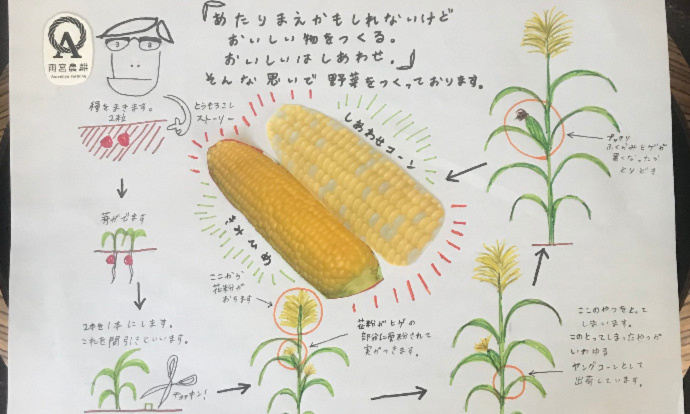 『あたりまえかもしれないけど
おいしい物をつくる。
おいしいはしあわせ.』
そんな思いで野菜をつくっております。
雨宮農耕
38
種をまきます。
2粒
とうもろこし
ストーリー
しあわせコーン
芽がでます
2本を1本にします。
これを間引きといいます。
チョキン!
ここから
花粉が
おります
花粉がヒゲの
部分に受粉されて
実ができます。
ここのやつをとって
しまいます。
このとってしまったやつが
いわゆる
ヤングコーンとして
出荷しています。
ふくらみヒゲが
黒くなったら
とりどき